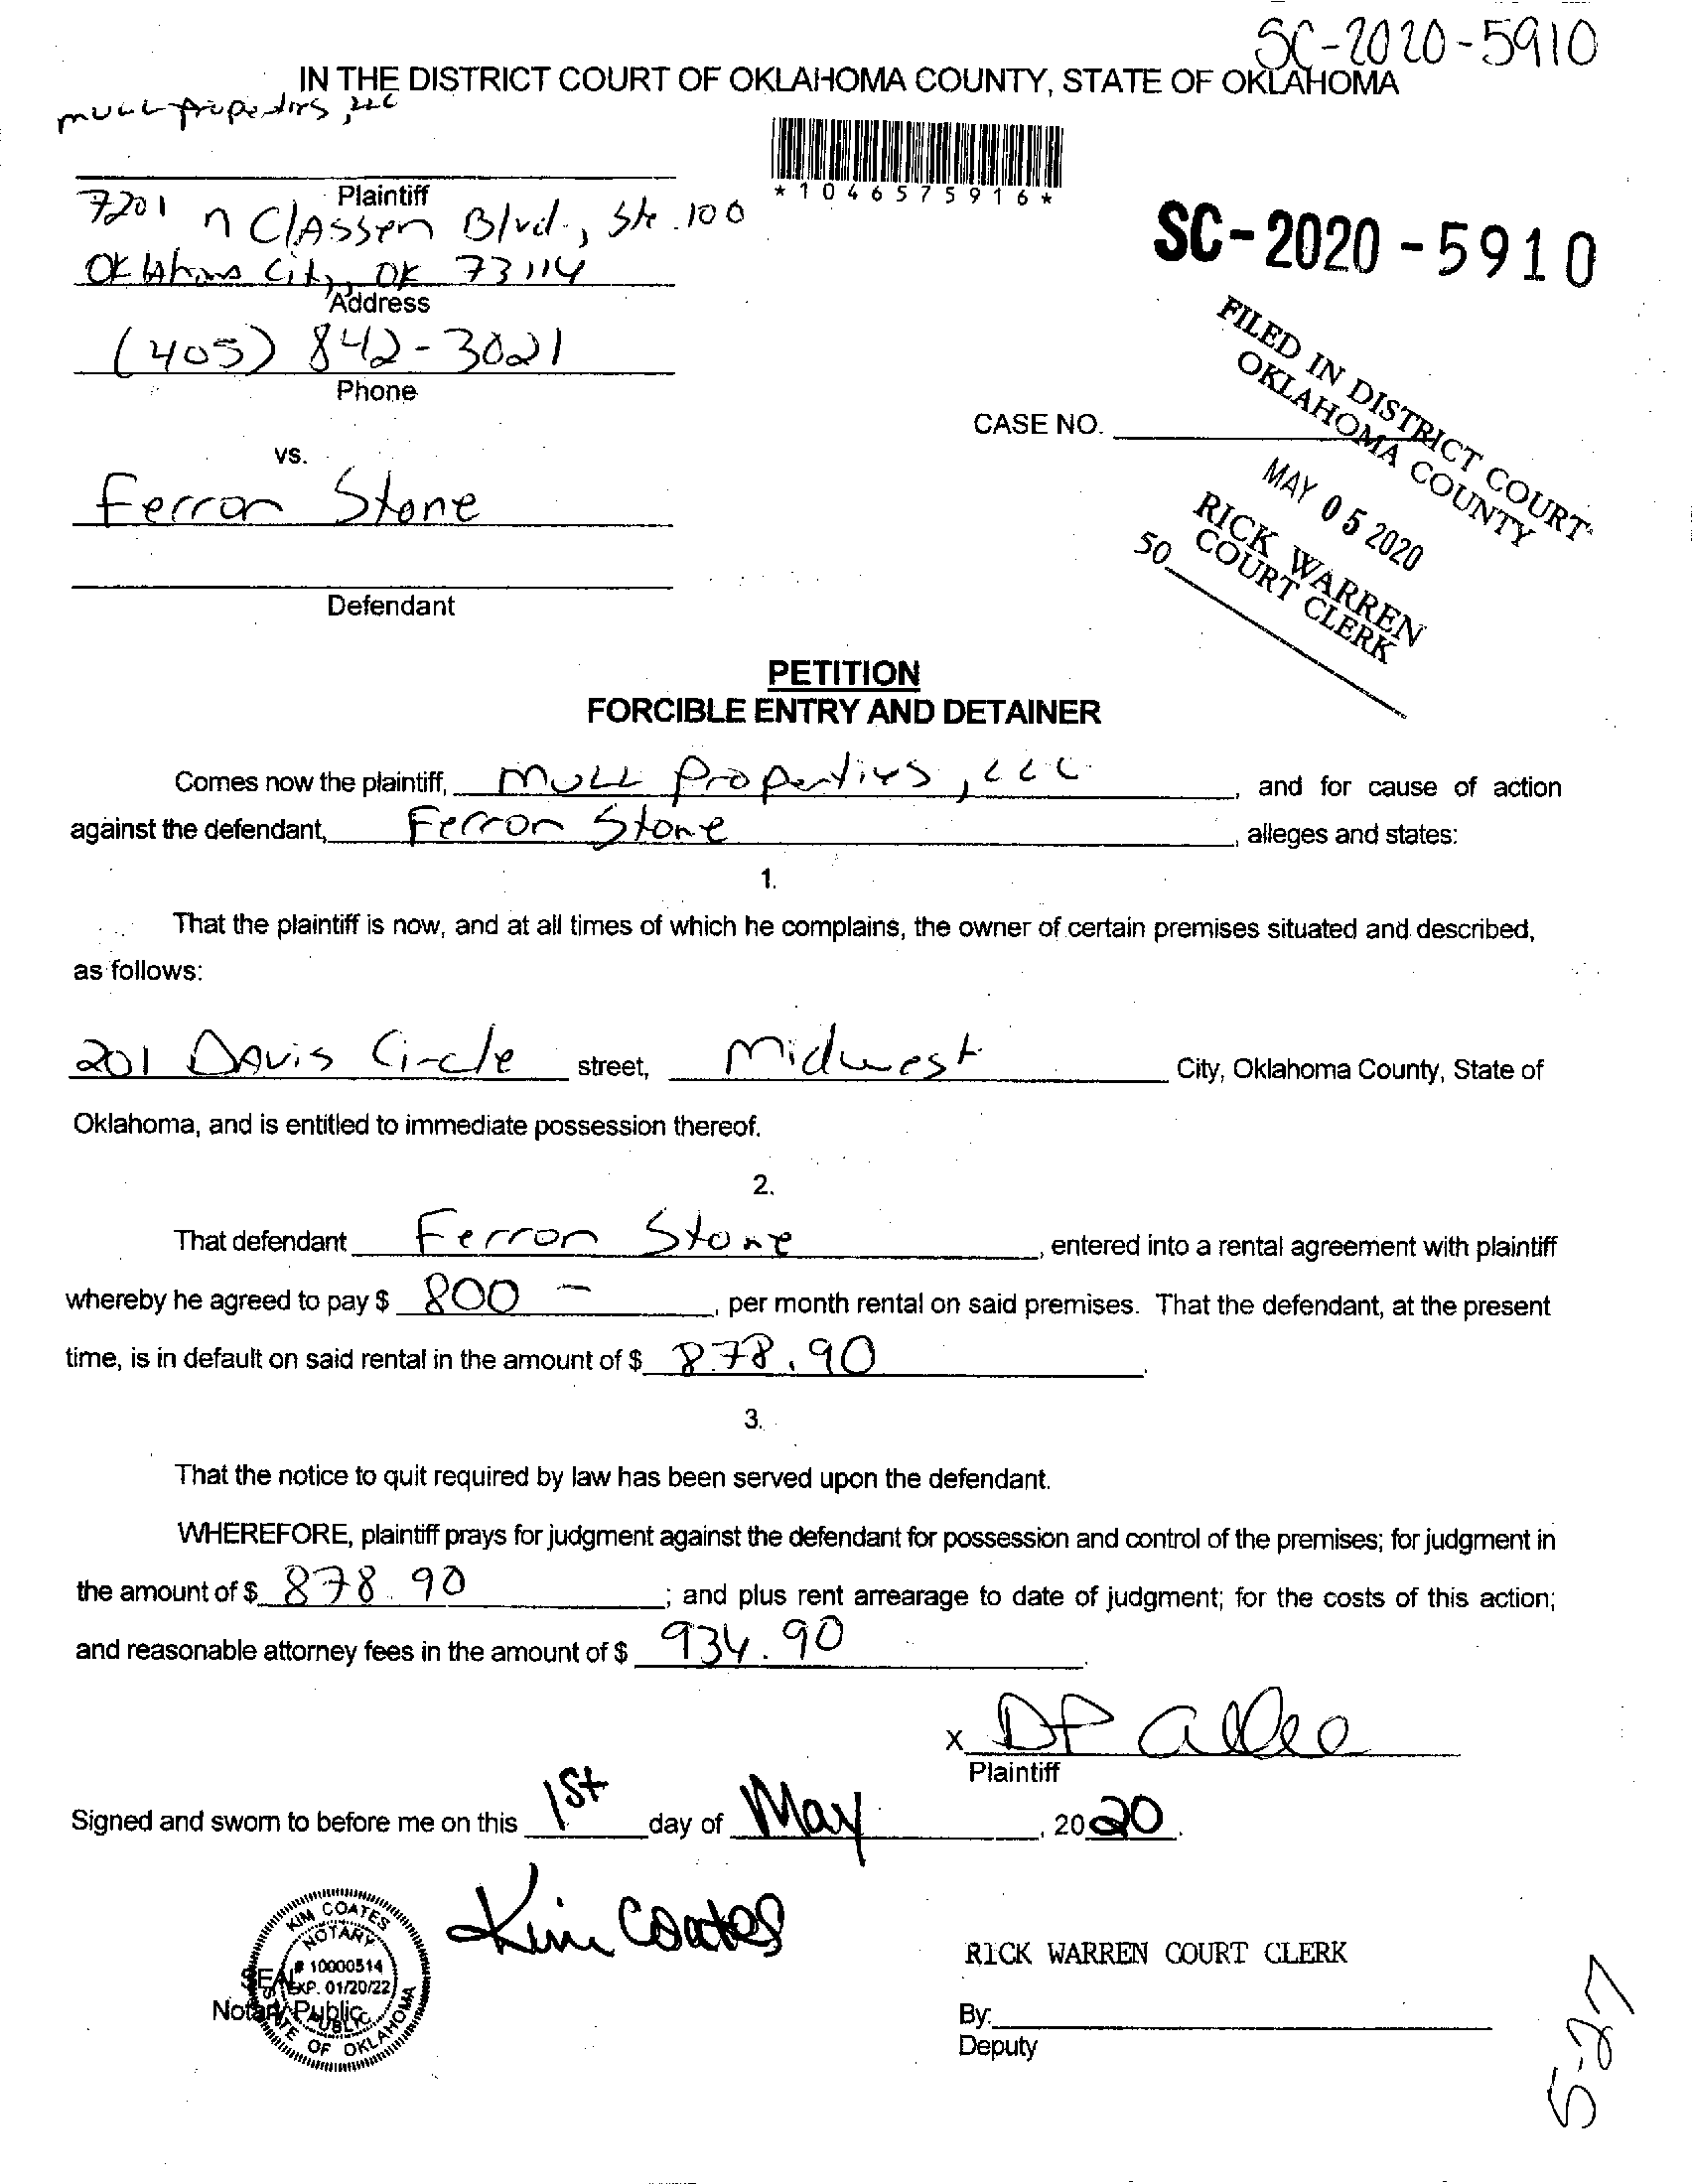 SC-2020-5910
IN THE DISTRICT COURT OF OKLAHOMA COUNTY, STATE OF OKLAHOMA
MULL Properties, LLC
*1046575916*
Plaintiff
7201 N Classen Blvd., Ste. 100
SC-2020-5910
Oklahoma City, OK 73114
Address
(405) 842-3021
Phone
FILED IN DISTRICT COURT
OKLAHOMA COUNTY
CASE NO.
MAY 05 2020
RICK WARREN
COURT CLERK
50
vs.
Ferron Stone
Defendant
PETITION
FORCIBLE ENTRY AND DETAINER
Comes now the plaintiff, MULL Properties, LLC, and for cause of action
against the defendant, Ferron Stone, alleges and states:
1.
That the plaintiff is now, and at all times of which he complains, the owner of certain premises situated and described,
as follows:
201 Davis Circle street, Midwest City, Oklahoma County, State of
Oklahoma, and is entitled to immediate possession thereof.
2.
That defendant Ferron Stone, entered into a rental agreement with plaintiff
whereby he agreed to pay $ 800 -, per month rental on said premises. That the defendant, at the present
time, is in default on said rental in the amount of $ 878.90.
3.
That the notice to quit required by law has been served upon the defendant.
WHEREFORE, plaintiff prays for judgment against the defendant for possession and control of the premises; for judgment in
the amount of $ 878.90; and plus rent arrearage to date of judgment; for the costs of this action;
and reasonable attorney fees in the amount of $ 934.90.
X
Plaintiff
Signed and sworn to before me on this 1st day of May, 2020.
Kim Coates
KIM COATES
NOTARY
# 10000514
EXP. 01/20/22
PUBLIC
STATE OF OKLAHOMA
SEAL
Notary Public
RICK WARREN COURT CLERK
By:
Deputy
5-27